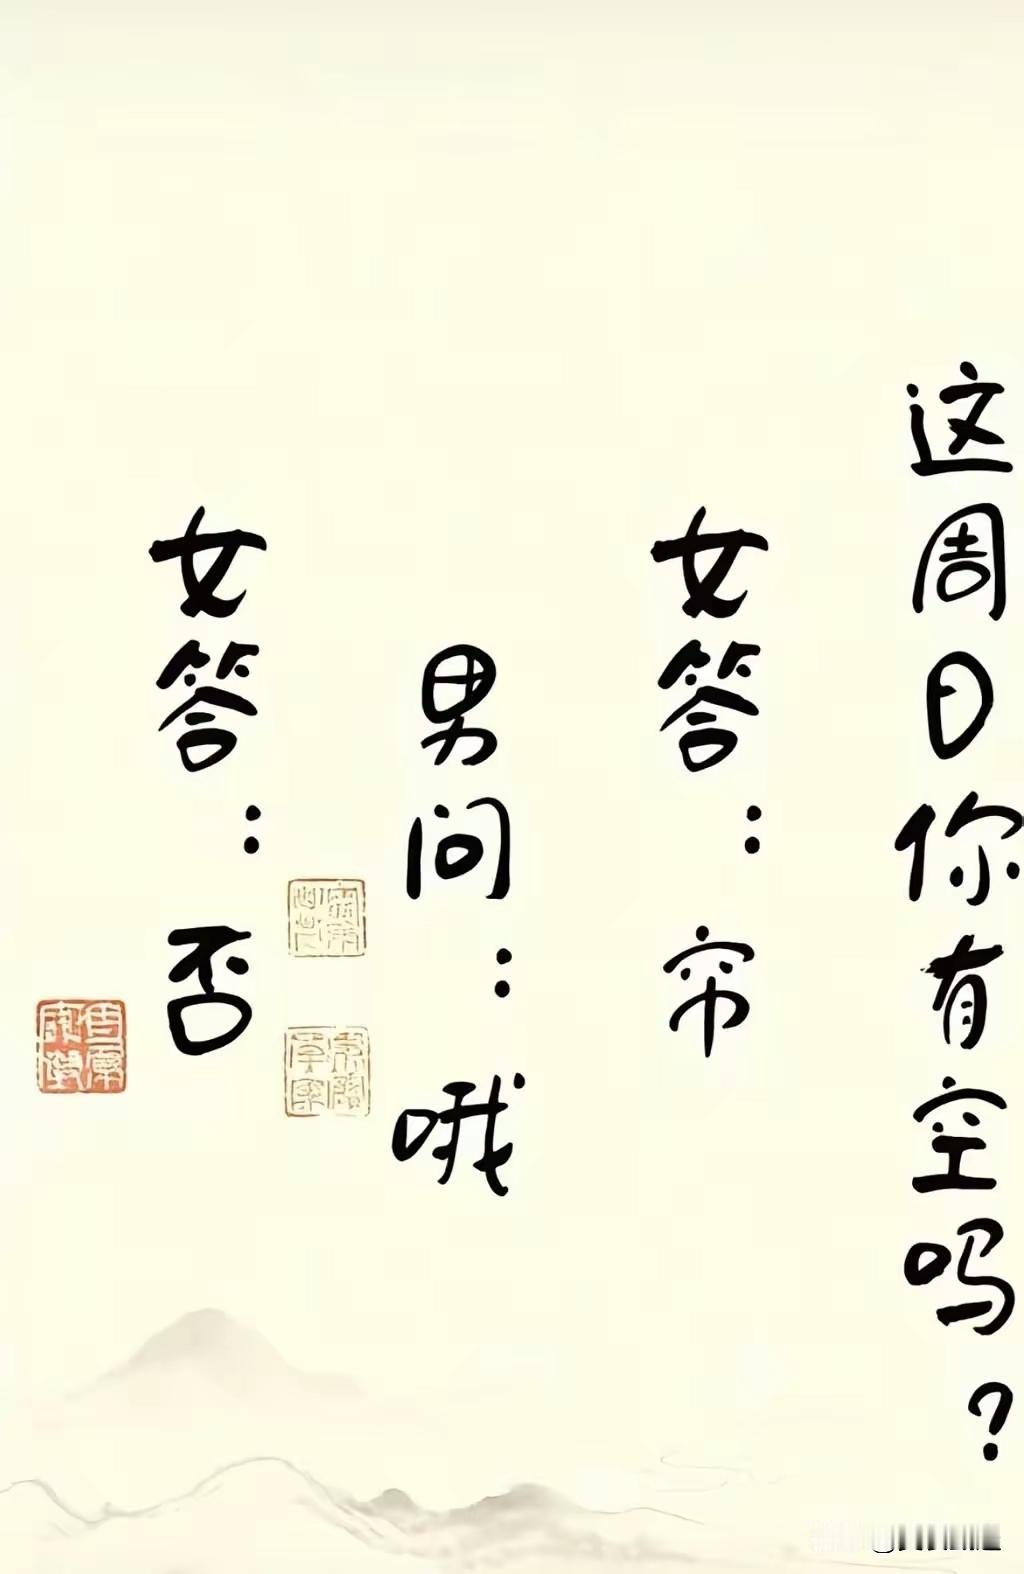 这周日你有空吗？
女答：帘
男问：哦
女答：否